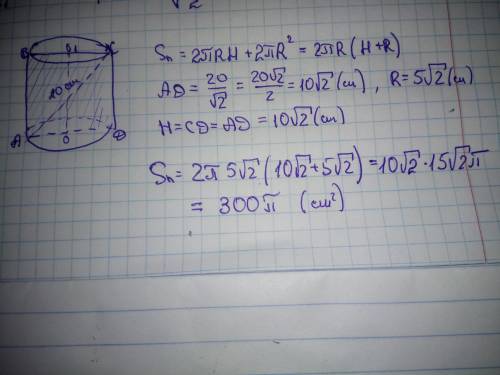 √2
B
C
20 см
A
O
D
Sп = 2πRH + 2πR² = 2πR (H+R)
AD = 20/√2 = 20√2/2 = 10√2 (см) , R = 5√2 (см)
H = CD = AD = 10√2 (см)
Sп = 2π 5√2 (10√2 + 5√2) = 10√2 · 15√2 π
= 300π (см²)